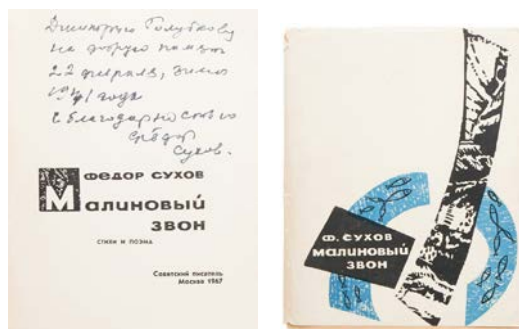 Дмитрию Голубкову
на добрую память
22 февраля, зима
года
с благодарностью
Фёдор
Сухов.
ФЕДОР СУХОВ
МАЛИНОВЫЙ
ЗВОН
СТИХИ И ПОЭМА
Советский писатель
Москва 1967
Ф. СУХОВ
МАЛИНОВЫЙ
ЗВОН